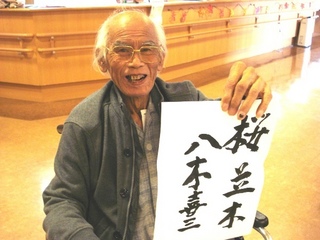 桜並木
八木喜三